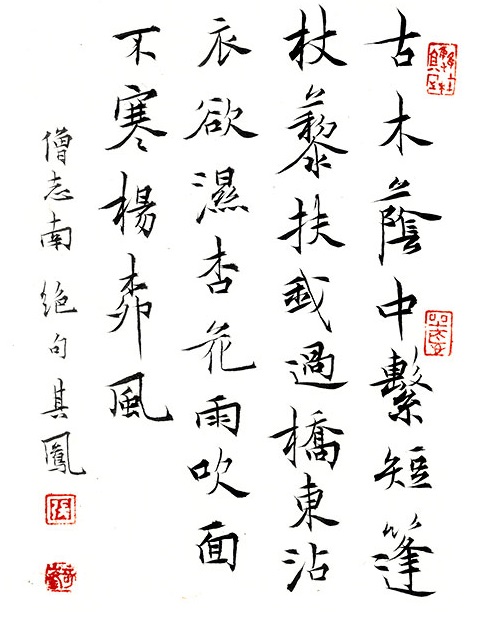 古木蔭中繫短篷
杖藜扶我過橋東沾
衣欲濕杏花雨吹面
不寒楊柳風
僧志南 絶句 其鳳